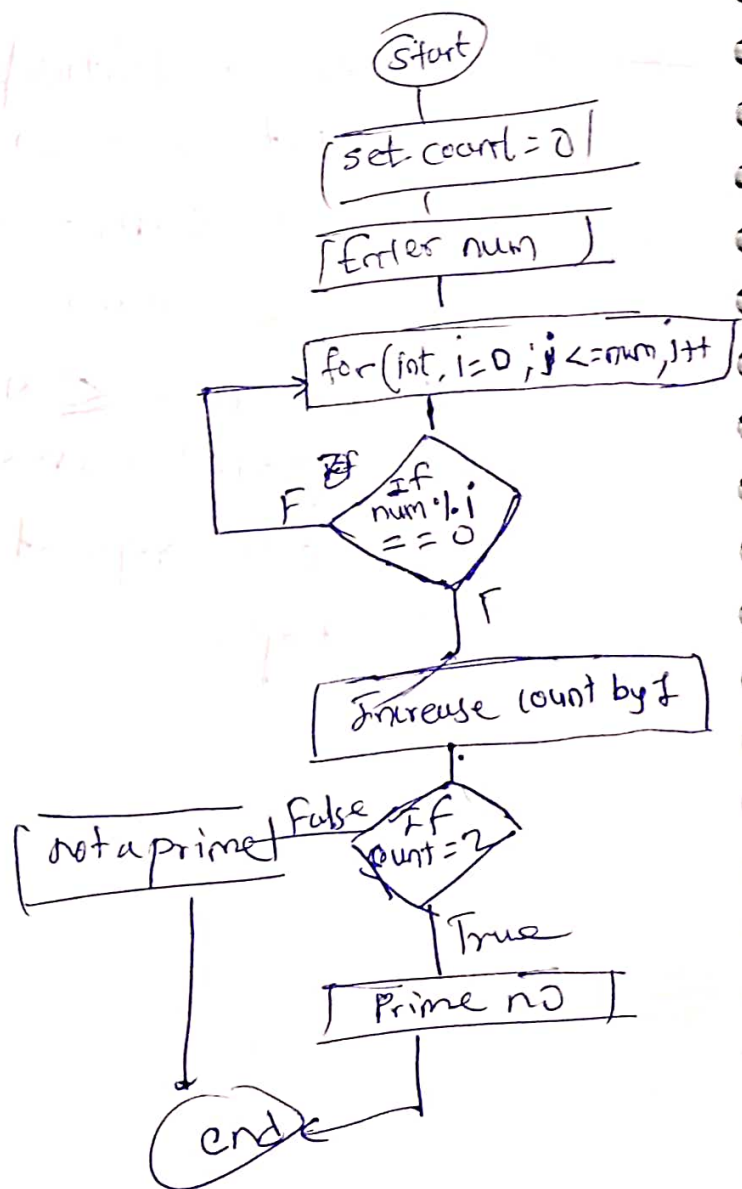 Start
set count = 0
Enter num
for(int, i=0; i<=num, i++
F
If
num % i
== 0
T
Increase count by 1
If
count = 2
False
not a prime
True
Prime no
end